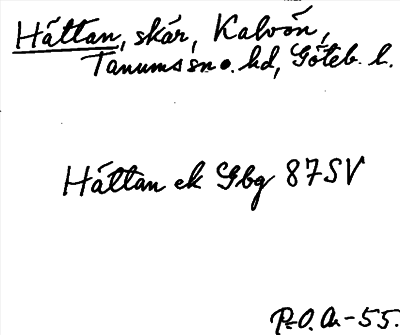 Håttan, skär, Kalvön,
Tanums sn o. hd, Göteb. l.
Håttan ek Gbg 87SV
P.O. An-55.